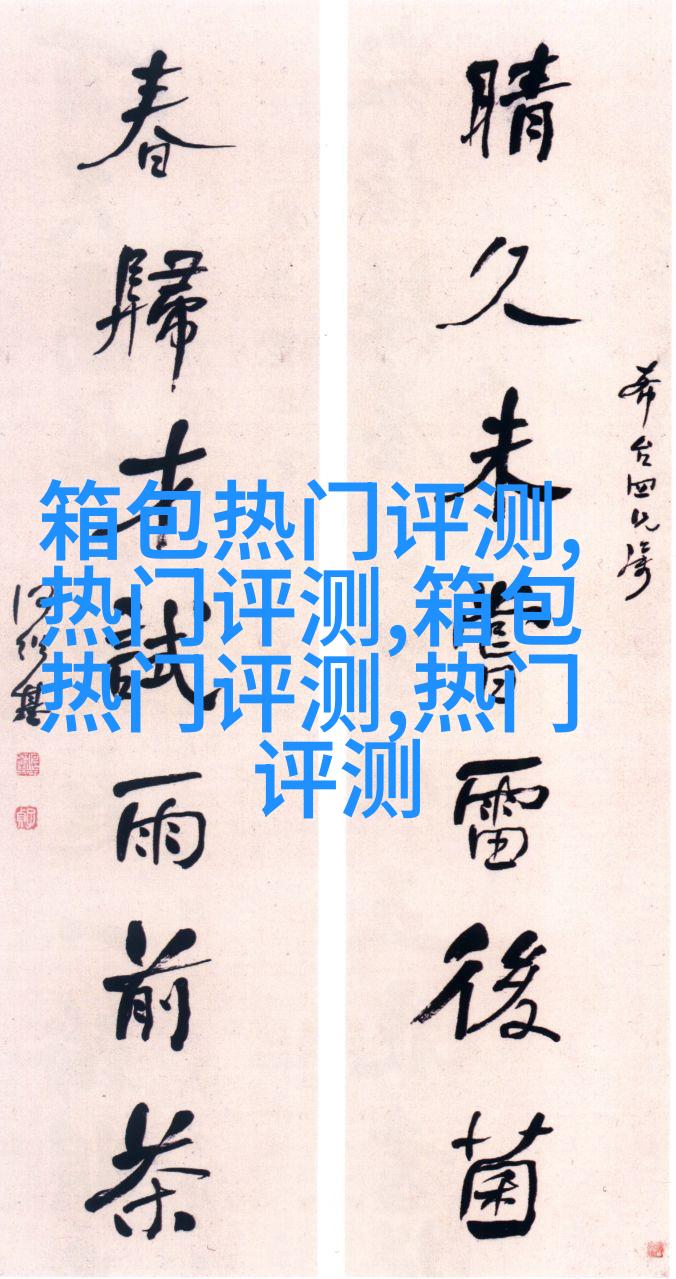 晴久未嘗雷後菌
春歸才試雨前茶
何紹基
箱包热门评测,
热门评测,箱包
热门评测,热门
评测